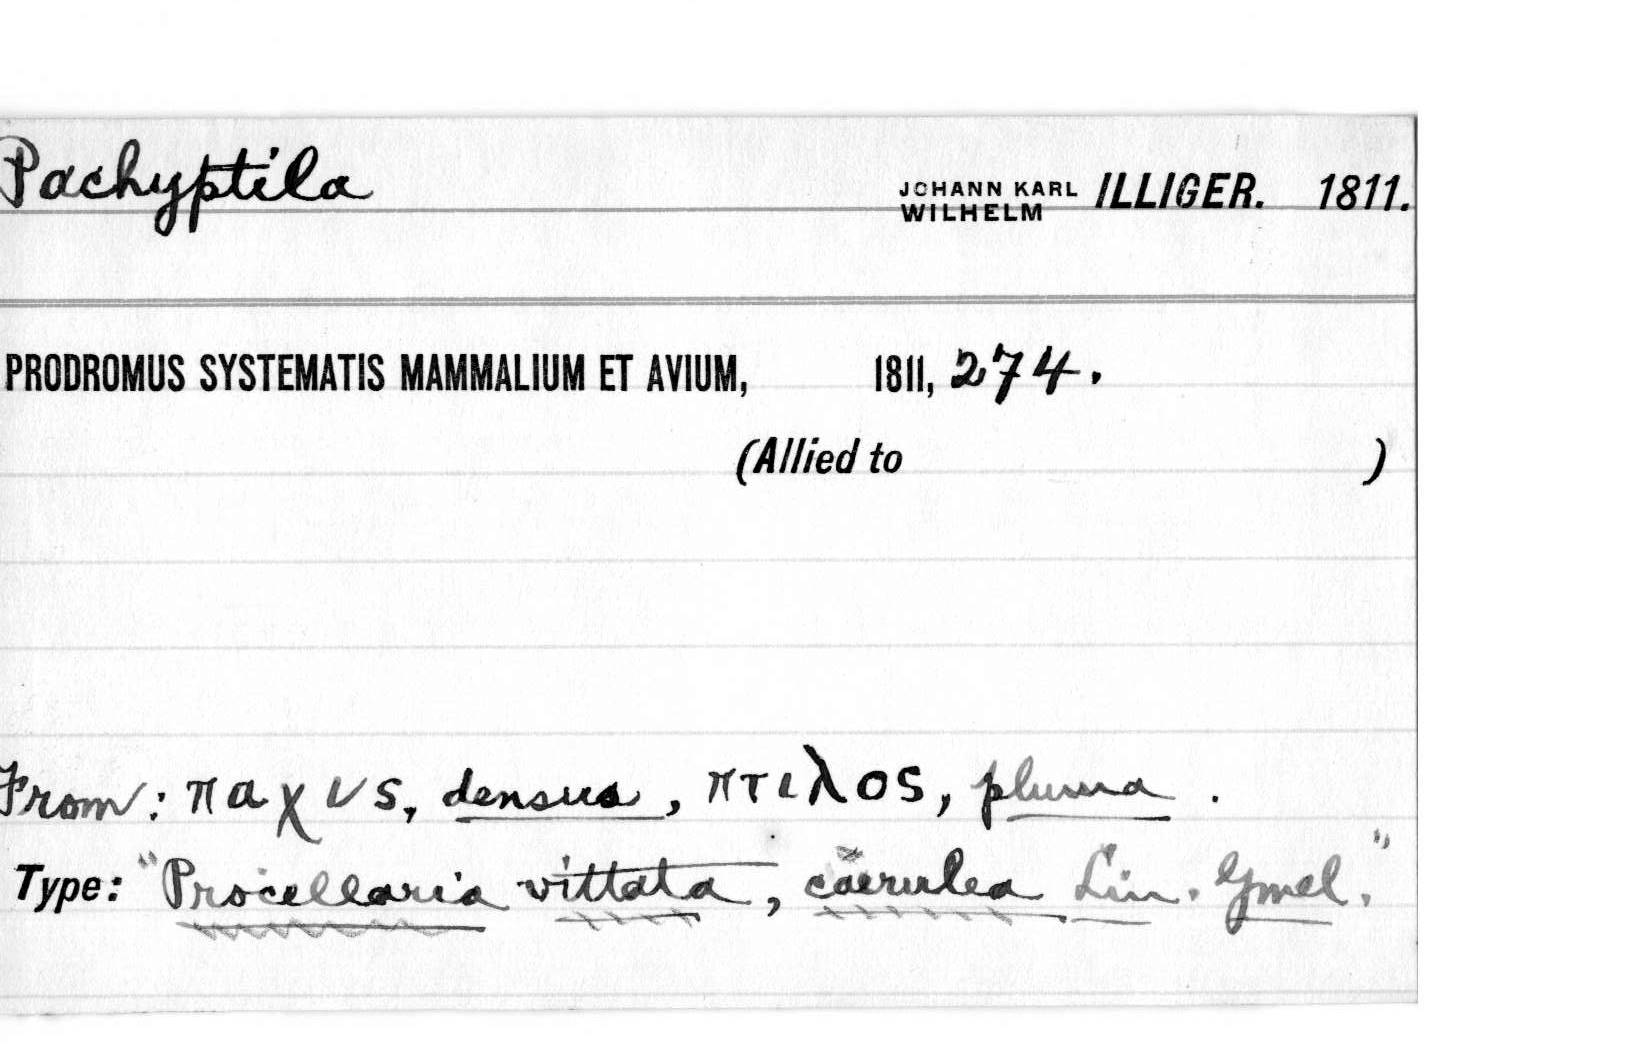 Pachyptila JOHANN KARL WILHELM ILLIGER. 1811.
PRODROMUS SYSTEMATIS MAMMALIUM ET AVIUM, 1811, 274.
(Allied to )
From: παχυς, densus, πτιλος, pluma.
Type: "Procellaria vittata, caerulea Lin. Gmel."